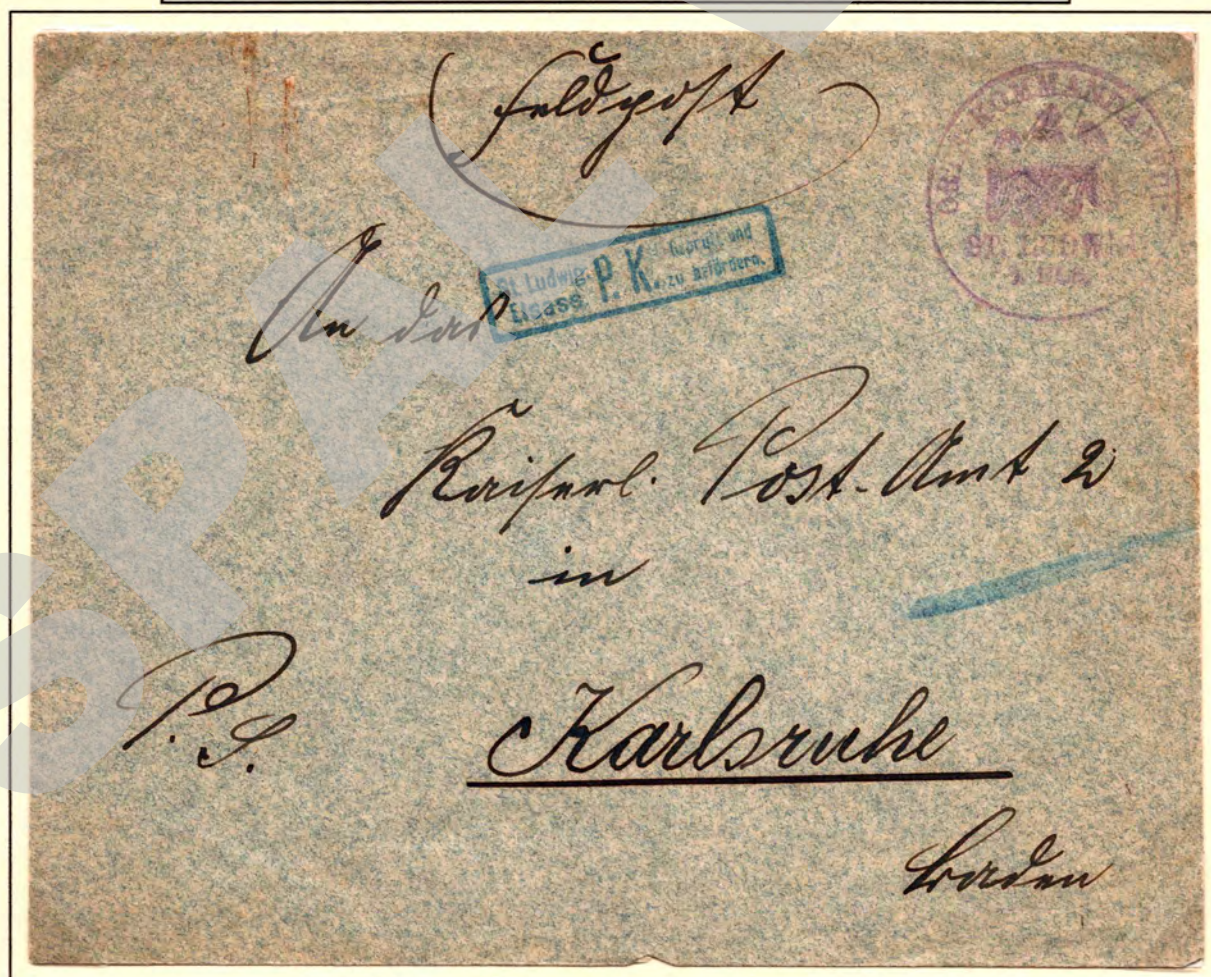 Feldpost
ORTS KOMMANDANTUR
ST. LUDWIG
St. Ludwig Elsass P. K. Geprüft und zu befördern.
An das
Kaiserl. Post-Amt 2
in
P. S.
Karlsruhe
Baden
SPAL